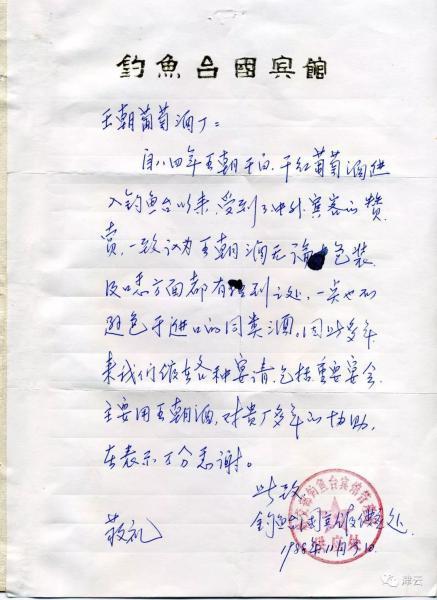 钓鱼台國宾館
王朝葡萄酒厂：
自八四年王朝干白、干红葡萄酒进
入钓鱼台以来，受到了中外宾客的赞
赏，一致认为王朝酒无论包装
及口感方面都有独到之处，一点也不
逊色于进口的同类酒。因此多年
来我们馆在各种宴请包括重要宴会
主要用王朝酒，对贵厂多年的协助，
在表示十分感谢。
此致
敬礼
钓鱼台国宾馆供应处
1988年11月10
津云